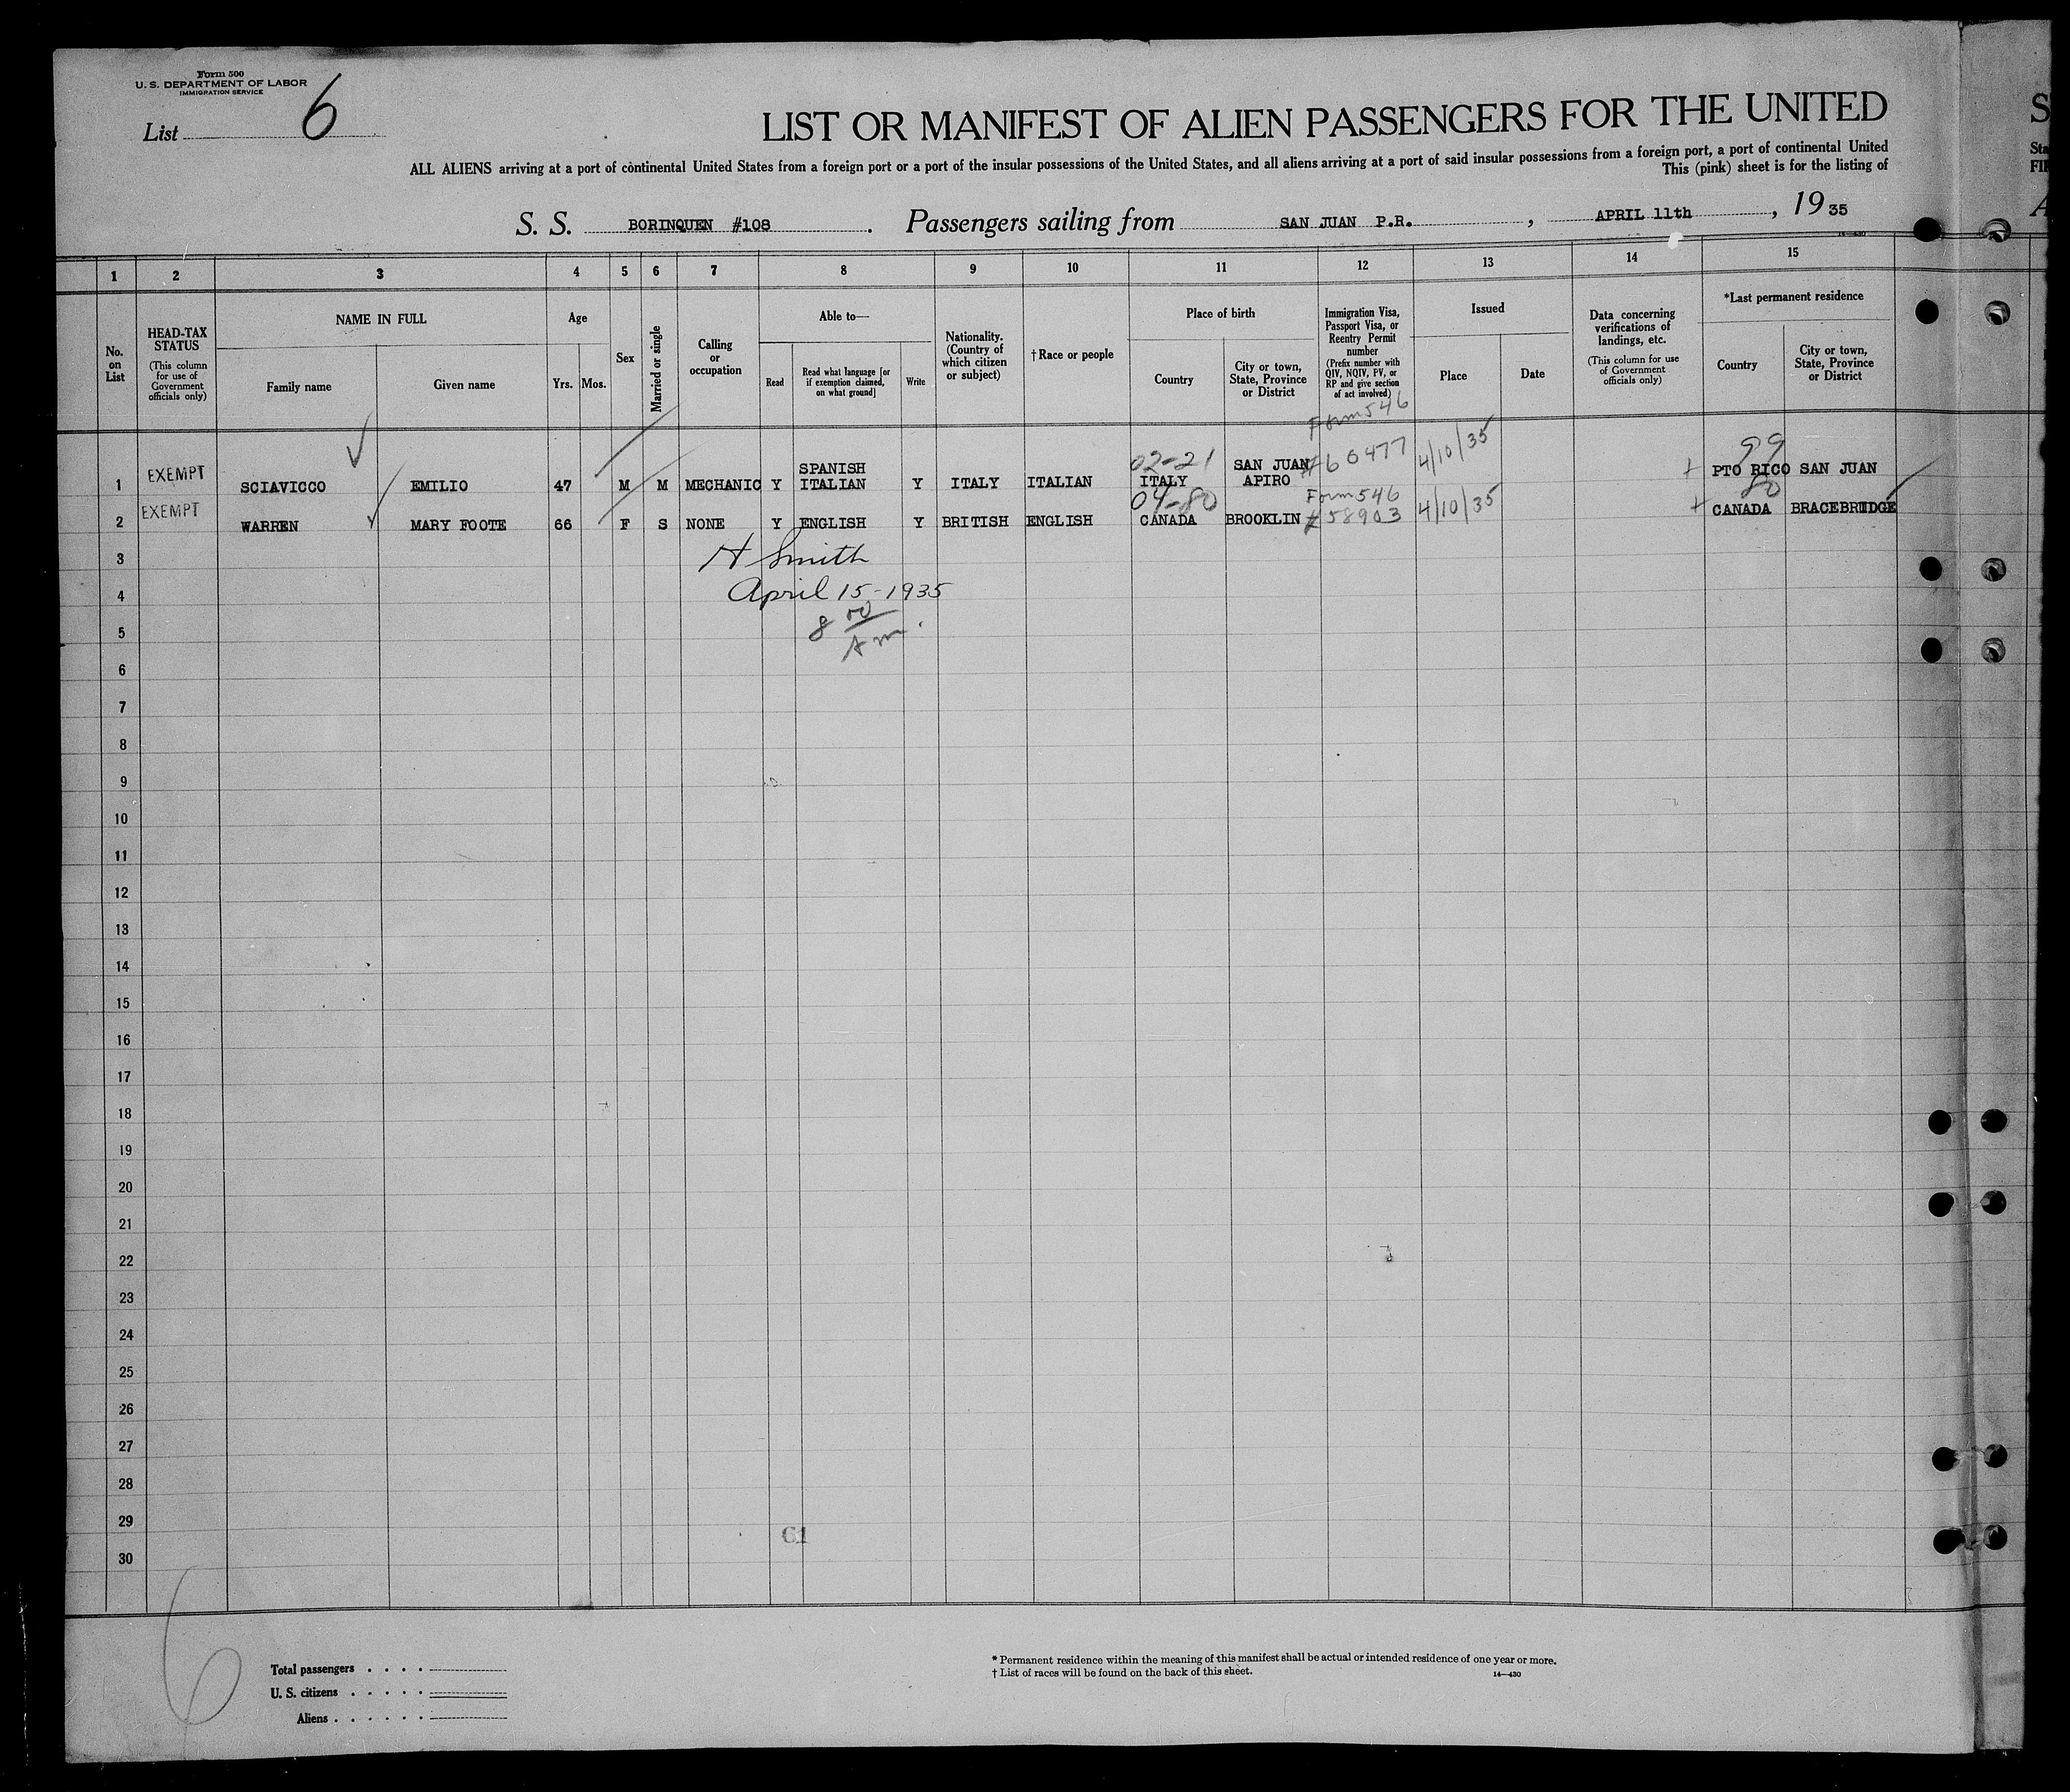 Form 500
U. S. DEPARTMENT OF LABOR
IMMIGRATION SERVICE
List 6
LIST OR MANIFEST OF ALIEN PASSENGERS FOR THE UNITED
ALL ALIENS arriving at a port of continental United States from a foreign port or a port of the insular possessions of the United States, and all aliens arriving at a port of said insular possessions from a foreign port, a port of continental United
This (pink) sheet is for the listing of
S. S. BORINQUEN #108 . Passengers sailing from SAN JUAN P.R. , APRIL 11th , 19 35
1 2 3 4 5 6 7 8 9 10 11 12 13 14 15
No. on List
HEAD-TAX STATUS
(This column for use of Government officials only)
NAME IN FULL
Family name
Given name
Age
Yrs. Mos.
Sex
Married or single
Calling or occupation
Able to—
Read
Read what language [or if exemption claimed, on what ground]
Write
Nationality. (Country of which citizen or subject)
†Race or people
Place of birth
Country
City or town, State, Province or District
Immigration Visa, Passport Visa, or Reentry Permit number
(Prefix number with QIV, NQIV, PV, or RP and give section of act involved)
Issued
Place
Date
Data concerning verifications of landings, etc.
(This column for use of Government officials only)
*Last permanent residence
Country
City or town, State, Province or District
Form 546
02-21 99
1 EXEMPT SCIAVICCO EMILIO 47 M M MECHANIC Y SPANISH ITALIAN Y ITALY ITALIAN ITALY SAN JUAN APIRO #60477 4/10/35 PTO RICO SAN JUAN
04-80 Form 546 80
2 EXEMPT WARREN MARY FOOTE 66 F S NONE Y ENGLISH Y BRITISH ENGLISH CANADA BROOKLIN #58903 4/10/35 CANADA
3 H Smith
4 April 15-1935
5 8 00 Am.
6
7
8
9
10
11
12
13
14
15
16
17
18
19
20
21
22
23
24
25
26
27
28
29
30
61
6
Total passengers
U. S. citizens
Aliens
* Permanent residence within the meaning of this manifest shall be actual or intended residence of one year or more.
† List of races will be found on the back of this sheet.
14—430